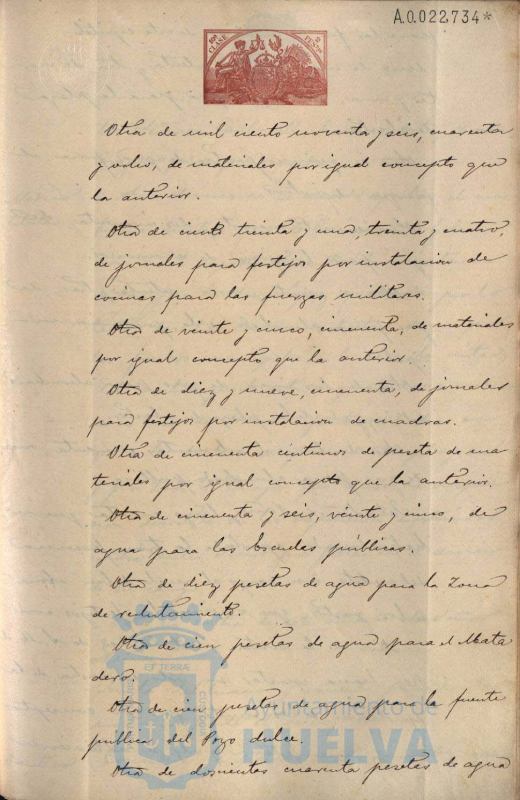 A.0.022,734*
10ª CLASE 2 PESETAS
Otra de mil ciento noventa y seis, cuarenta
y ocho, de materiales por igual concepto que
la anterior.
Otra de ciento treinta y una, treinta y cuatro,
de jornales para festejos por instalacion de
cocinas para las fuerzas militares.
Otra de veinte y cinco, cincuenta, de materiales
por igual concepto que la anterior.
Otra de diez y nueve, cincuenta, de jornales
para festejos por instalacion de cuadras.
Otra de cincuenta céntimos de peseta de ma
teriales por igual concepto que la anterior.
Otra de cincuenta y seis, veinte y cinco, de
agua para las Escuelas públicas.
Otra de diez pesetas de agua para la Zona
de reclutamiento.
Otra de cien pesetas de agua para el Mata
dero.
Otra de cien pesetas de agua para la fuente
pública del Pozo dulce.
Otra de doscientas cuarenta pesetas de agua
Ayuntamiento de
HUELVA